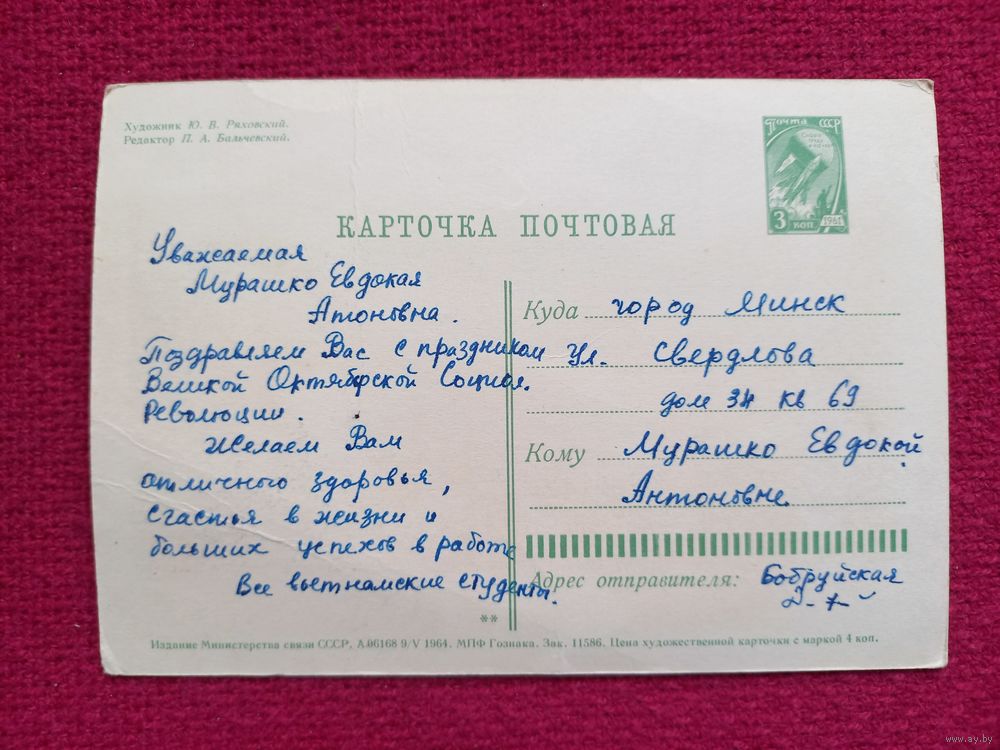 Художник Ю. В. Ряховский.
Редактор П. А. Бальчевский.
Почта СССР
3 коп
1961
КАРТОЧКА ПОЧТОВАЯ
Уважаемая
Мурашко Евдокая
Атоновна.
Поздравляем Вас с праздником
Великой Октябрской Социал.
Революции.
Желаем Вам
отличного здоровья,
счастья в жизни и
больших успехов в работе
Все вьетнамские студенты.
**
Куда город Минск
ул. Свердлова
дом 34 кв 69
Кому Мурашко Евдокой
Антоновне
Адрес отправителя: Бобруйская
Издание Министерства связи СССР, А06168 9/V 1964. МПФ Гознака. Зак. 11586. Цена художественной карточки с маркой 4 коп.
www.ay.by